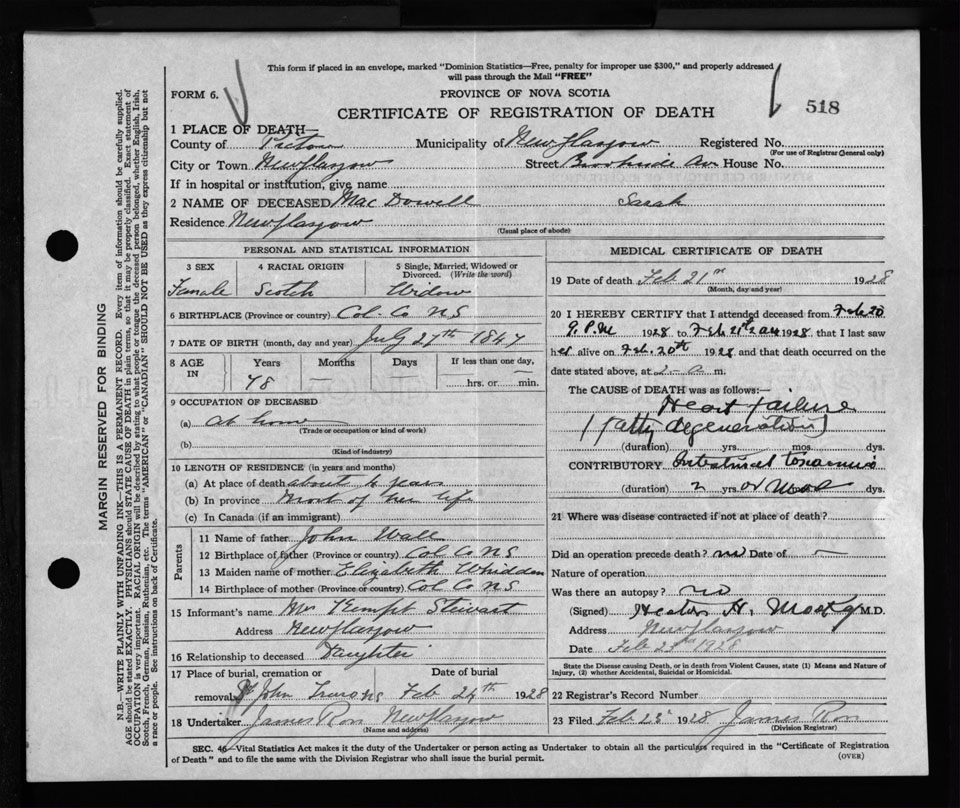 This form if placed in an envelope, marked "Dominion Statistics—Free, penalty for improper use $300," and properly addressed
will pass through the Mail "FREE"
FORM 6.
PROVINCE OF NOVA SCOTIA
CERTIFICATE OF REGISTRATION OF DEATH
518
1 PLACE OF DEATH—
County of Pictou Municipality of New Glasgow Registered No.
(For use of Registrar General only)
City or Town New Glasgow Street Brookside Av. House No.
If in hospital or institution, give name
2 NAME OF DECEASED MacDowell Sarah
Residence New Glasgow
(Usual place of abode)
PERSONAL AND STATISTICAL INFORMATION
3 SEX 4 RACIAL ORIGIN 5 Single, Married, Widowed or
Divorced. (Write the word)
Female Scotch Widow
6 BIRTHPLACE (Province or country) Col. Co NS
7 DATE OF BIRTH (month, day and year) July 27th 1847
8 AGE IN Years Months Days If less than one day,
hrs. or min.
9 OCCUPATION OF DECEASED
(a) At home
(Trade or occupation or kind of work)
(b)
(Kind of industry)
10 LENGTH OF RESIDENCE (in years and months)
(a) At place of death about years
(b) In province Most of her life
(c) In Canada (if an immigrant)
Parents
11 Name of father John Wall
12 Birthplace of father (Province or country) Col Co NS
13 Maiden name of mother Elizabeth Whidden
14 Birthplace of mother (Province or country) Col Co NS
15 Informant's name Mrs Stewart
Address New Glasgow
16 Relationship to deceased Daughter
17 Place of burial, cremation or Date of burial
removal St John Truro NS Feb 24th 1928
18 Undertaker James Ross New Glasgow
(Name and address)
MEDICAL CERTIFICATE OF DEATH
19 Date of death Feb 21st 1928
(Month, day and year)
20 I HEREBY CERTIFY that I attended deceased from Feb 20
P.M 1928 to Feb 21st 2 am 1928, that I last saw
her alive on Feb. 20th 1928 and that death occurred on the
date stated above, at 2 a m.
The CAUSE of DEATH was as follows:—
Heart failure
(fatty degeneration)
(duration) yrs. mos. dys.
CONTRIBUTORY Intestinal
(duration) 2 yrs. or more dys.
21 Where was disease contracted if not at place of death?
Did an operation precede death? no Date of —
Nature of operation
Was there an autopsy? no
(Signed) H. M.D.
Address New Glasgow
Date Feb 1928
State the Disease causing Death, or in death from Violent Causes, state (1) Means and Nature of
Injury, (2) whether Accidental, Suicidal or Homicidal.
22 Registrar's Record Number
23 Filed Feb 1928 James Ross
(Division Registrar)
SEC. 46—Vital Statistics Act makes it the duty of the Undertaker or person acting as Undertaker to obtain all the particulars required in the "Certificate of Registration
of Death" and to file the same with the Division Registrar who shall issue the burial permit.
(OVER)
MARGIN RESERVED FOR BINDING
N.B.—WRITE PLAINLY WITH UNFADING INK—THIS IS A PERMANENT RECORD. Every item of information should be carefully supplied.
AGE should be stated EXACTLY. PHYSICIANS should STATE CAUSE OF DEATH in plain terms, so that it may be properly classified. Exact statement of
OCCUPATION is very important. RACIAL ORIGIN will be described by stating to what people or tongue the deceased person belonged, whether English, Irish,
Scotch, French, German, Russian, Ruthenian, etc. The terms "AMERICAN" or "CANADIAN" SHOULD NOT BE USED as they express citizenship but not
a race or people. See instructions on back of Certificate.